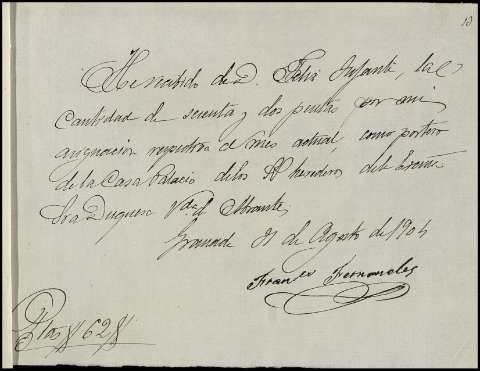 13
He recibido de D. Felix Infante, la
cantidad de sesenta y dos pesetas por mi
asignacion respectiva al mes actual, como portero
de la Casa Palacio de los herederos de la Excma
Sra Duquesa Vda de Abrantes
Granada 31 de Agosto de 1904
Franco Fernandez
Ptas 62